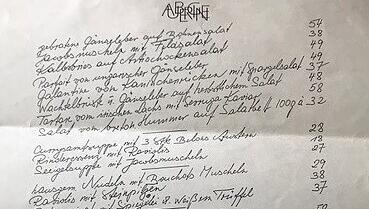 AUBERGINE
gebratene Gänseleber auf Bohnensalat 54
Jacobsmuscheln mit Filasalat 38
Kalbsbries auf Artischockensalat 49
Parfait von ungarischer Gänseleber 49
Galantine vom Kaninchenrücken mit Spargelsalat 37
Wachtelbrüst u. Gänseleber auf herbstlichem Salat 48
Tartar vom irischen Lachs mit Servuga Kaviar 58
Salat vom breton. Hummer auf Salatbett 100g à 32
suppe mit 3 Stk Belons Austern 28
Rinderessenz mit Raviolis 13
Seezungensuppe mit Jacobsmuscheln 27
hausgem. Nudeln mit Bouchot Muscheln 29
Raviolis mit Steinpilzen 38
mit Spiegelei & weißen Trüffel 37